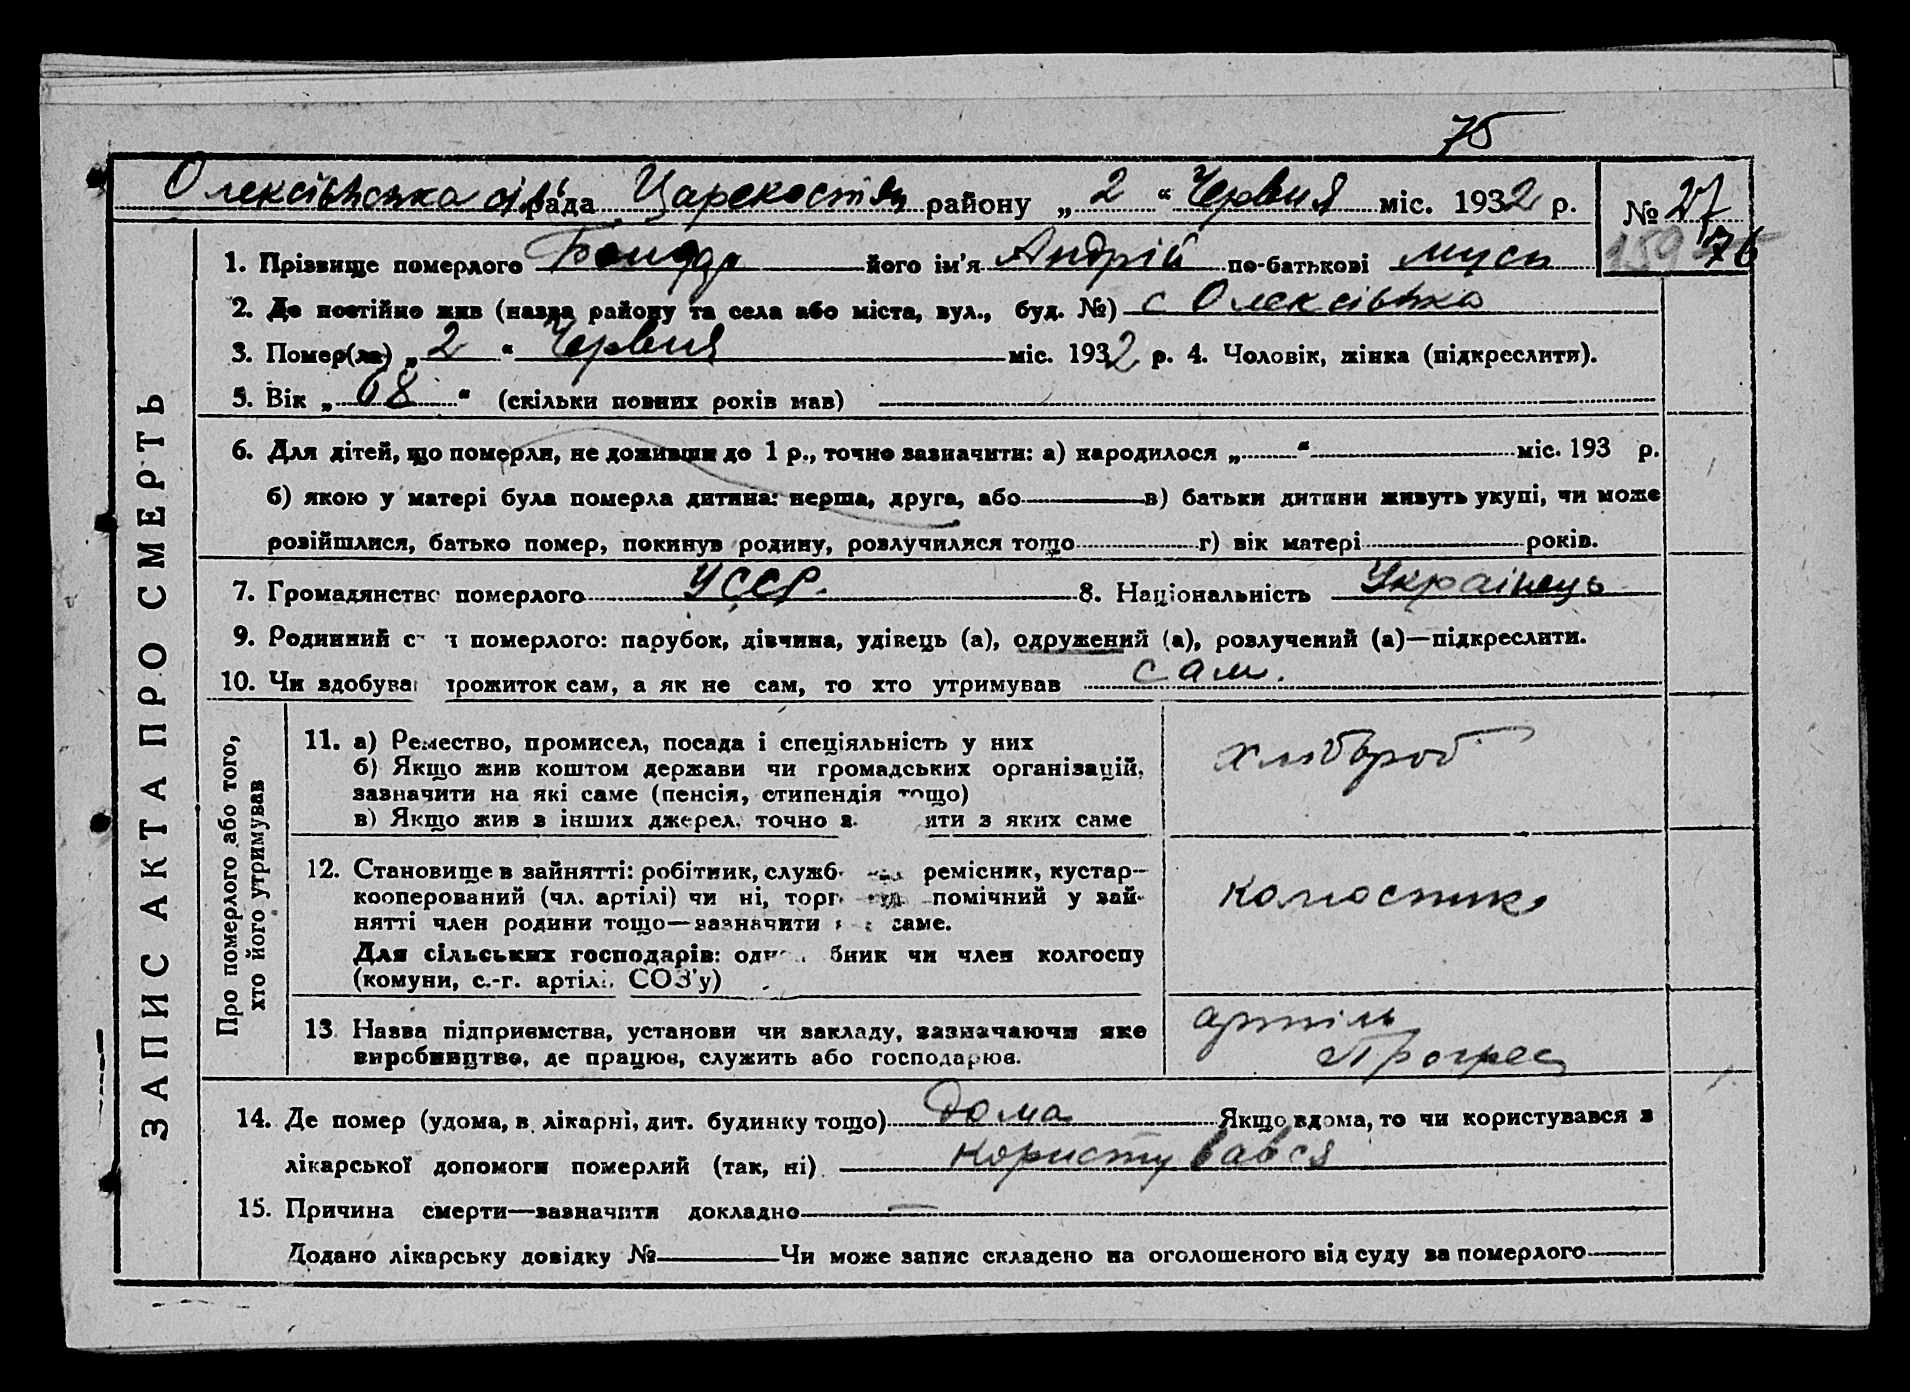 75
Олексіївська сіль рада Царекост район району „ 2 “ Червня міс. 1932 р. № 27
76
ЗАПИС АКТА ПРО СМЕРТЬ
1. Прізвище померлого Бондар його ім'я Андрій по-батькові
2. Де постійно жив (назва району та села або міста, вул., буд. №) с Олексіївка
3. Помер(ла) „ 2 “ Червня міс. 1932 р. 4. Чоловік, жінка (підкреслити).
5. Вік „ 68 “ (скільки повних років мав)
6. Для дітей, що померли, не доживши до 1 р., точно зазначити: а) народилося „ “ міс. 193 р.
б) якою у матері була померла дитина: перша, друга, або в) батьки дитини живуть укупі, чи може
розійшлися, батько помер, покинув родину, розлучилися тощо г) вік матері років.
7. Громадянство померлого УССР. 8. Національність Українець
9. Родинний ст н померлого: парубок, дівчина, удівець (а), одружений (а), розлучений (а)—підкреслити.
10. Чи здобував прожиток сам, а як не сам, то хто утримував сам.
Про померлого або того,
хто його утримував
11. а) Ремество, промисел, посада і спеціяльність у них
б) Якщо жив коштом держави чи громадських організацій,
зазначити на які саме (пенсія, стипендія тощо)
в) Якщо жив з інших джерел, точно з ити з яких саме
хлібороб
12. Становище в зайнятті: робітник, служб ремісник, кустар—
кооперований (чл. артілі) чи ні, торг помічний у зай-
нятті член родини тощо—зазначити саме.
Для сільських господарів: одн бник чи член колгоспу
(комуни, с.-г. артілі, СОЗ'у)
колгоспник
13. Назва підприємства, установи чи закладу, зазначаючи яке
виробництво, де працює, служить або господарює.
артіль
Прогрес
14. Де помер (удома, в лікарні, дит. будинку тощо) дома Якщо вдома, то чи користувався з
лікарської допомоги померлий (так, ні) користувався
15. Причина смерти—зазначити докладно —
Додано лікарську довідку № Чи може запис складено на оголошеного від суду за померлого